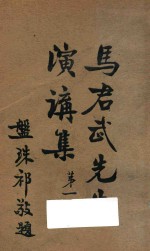 馬君武先生
演講集 第一
盤珠祁敬題